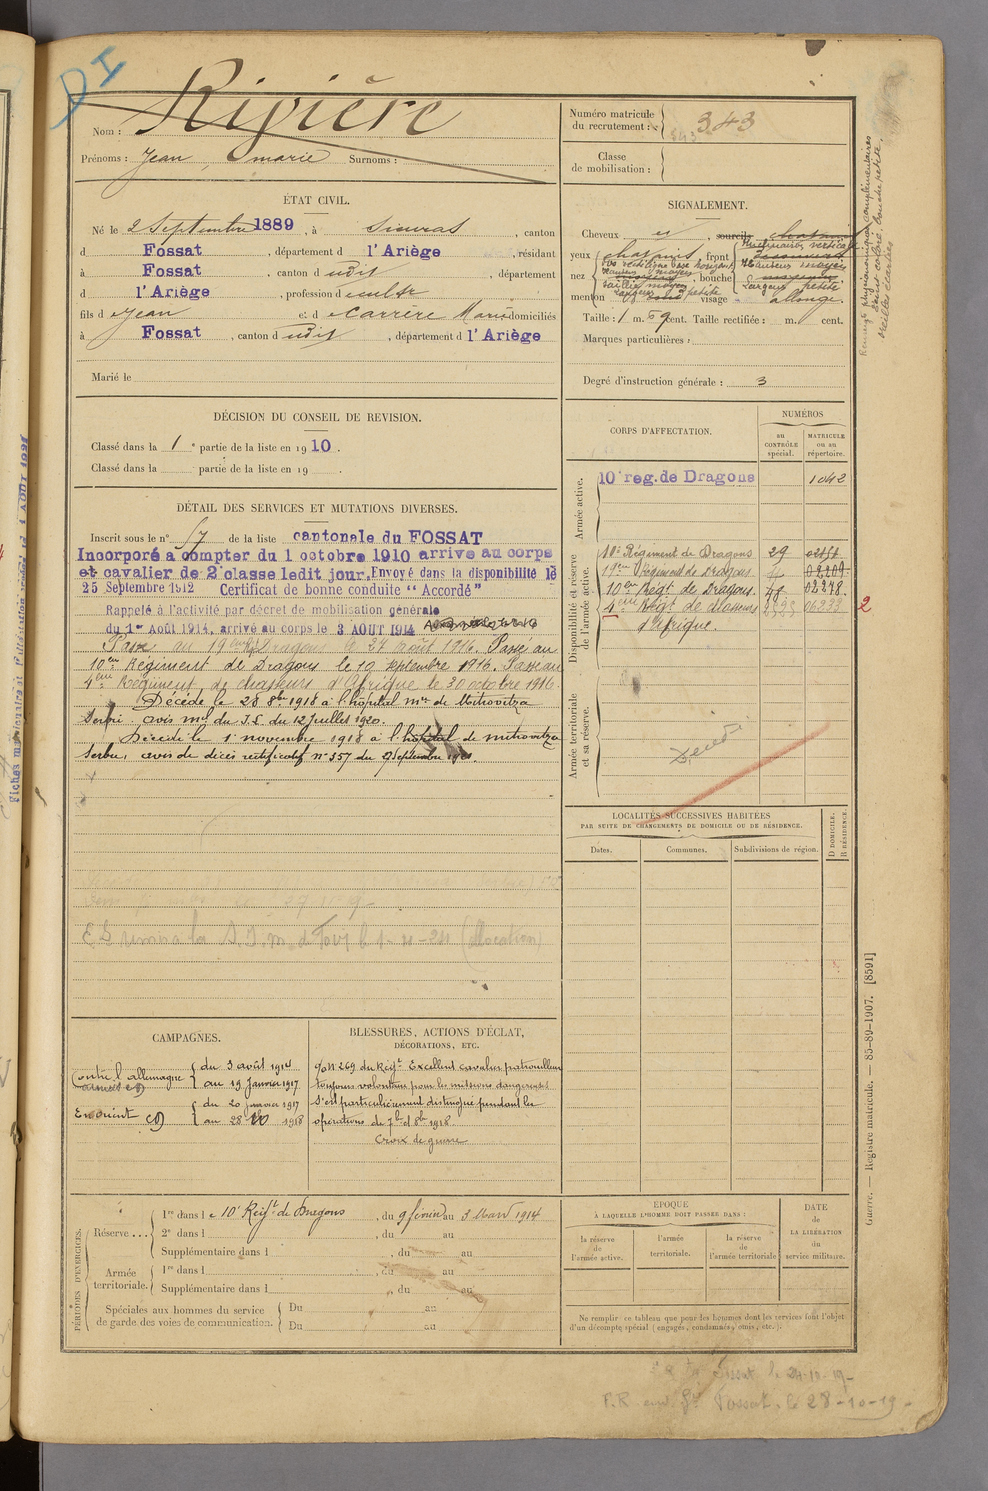 DI
Nom : Rivière
Prénoms : Jean marie Surnoms :
ÉTAT CIVIL.
Né le 2 Septembre 1889, à Sieuras, canton
d Fossat, département d l'Ariège, résidant
à Fossat, canton d udit, département
d l'Ariège, profession d cultr
fils d e Jean et d e Carrère Marie domiciliés
à Fossat, canton d udit, département d l'Ariège
Marié le
DÉCISION DU CONSEIL DE REVISION.
Classé dans la 1e partie de la liste en 1910.
Classé dans la partie de la liste en 19 .
DÉTAIL DES SERVICES ET MUTATIONS DIVERSES.
Inscrit sous le n° 57 de la liste cantonale du FOSSAT
Incorporé a compter du 1 octobre 1910 arrive au corps
et cavalier de 2e classe ledit jour. Envoyé dans la disponibilité le
25 Septembre 1912 Certificat de bonne conduite "Accordé"
Rappelé à l'activité par décret de mobilisation générale
du 1er Août 1914, arrivé au corps le 3 AOUT 1914
Passé au 19eme Rgt Dragons le 24 août 1916. Passé au
10eme Régiment de Dragons le 10 septembre 1916. Passé au
4eme Régiment de chasseurs d'Afrique le 30 octobre 1916.
Décédé le 28 8bre 1918 à l'hôpital mre de Mitrovitza
Serbie avis mel du J.S. du 12 juillet 1920.
Décédé le 1 novembre 1918 à l'hôpital de mitrovitza
Serbie, avis de décès rectificatif n° 557 du 9 Septembre 1921.
(allocation)
CAMPAGNES.
Contre l'allemagne du 3 août 1914
au 19 Janvier 1917
En Orient du 20 janvier 1917
au 28 1918
BLESSURES, ACTIONS D'ÉCLAT,
DÉCORATIONS, ETC.
O/ n° 269 du Régt Excellent cavalier patrouilleur
toujours volontaire pour les missions dangereuses
s'est particulièrement distingué pendant les
opérations de 7bre et 8bre 1918.
Croix de guerre
PÉRIODES D'EXERCICES.
Réserve.... 1re dans le 10e Regt de Dragons, du 9 février au 3 Mars 1914
2e dans l , du au
Supplémentaire dans l , du au
Armée territoriale. 1re dans l , du au
Supplémentaire dans l , du au
Spéciales aux hommes du service
de garde des voies de communication. Du au
Du au
Numéro matricule
du recrutement : 343
Classe
de mobilisation :
SIGNALEMENT.
Cheveux , sourcils
yeux chatains, front
nez , bouche
menton visage allongé.
Taille : 1 m. 69 cent. Taille rectifiée : m. cent.
Marques particulières :
Degré d'instruction générale : 3
CORPS D'AFFECTATION.
NUMÉROS
au CONTRÔLE spécial.
MATRICULE ou au répertoire.
Armée active.
10e reg. de Dragons 1042
Disponibilité et réserve de l'armée active.
10e Régiment de Dragons 29
19eme Régiment de Dragons 02209
10eme Régt de Dragons. 48 02248.
4eme Régt de chasseurs 06233 2
d'Afrique.
Armée territoriale et sa réserve.
Décédé
LOCALITÉS SUCCESSIVES HABITÉES
PAR SUITE DE CHANGEMENTS DE DOMICILE OU DE RÉSIDENCE.
Dates.
Communes.
Subdivisions de région.
D DOMICILE.
R RÉSIDENCE.
ÉPOQUE
À LAQUELLE L'HOMME DOIT PASSER DANS :
la réserve de l'armée active.
l'armée territoriale.
la réserve de l'armée territoriale
DATE de LA LIBÉRATION du service militaire.
Ne remplir ce tableau que pour les hommes dont les services font l'objet
d'un décompte spécial (engagés, condamnés, omis, etc.).
Guerre. — Registre matricule. — 85-89-1907. [8591]
Fossat, le 28-10-19-